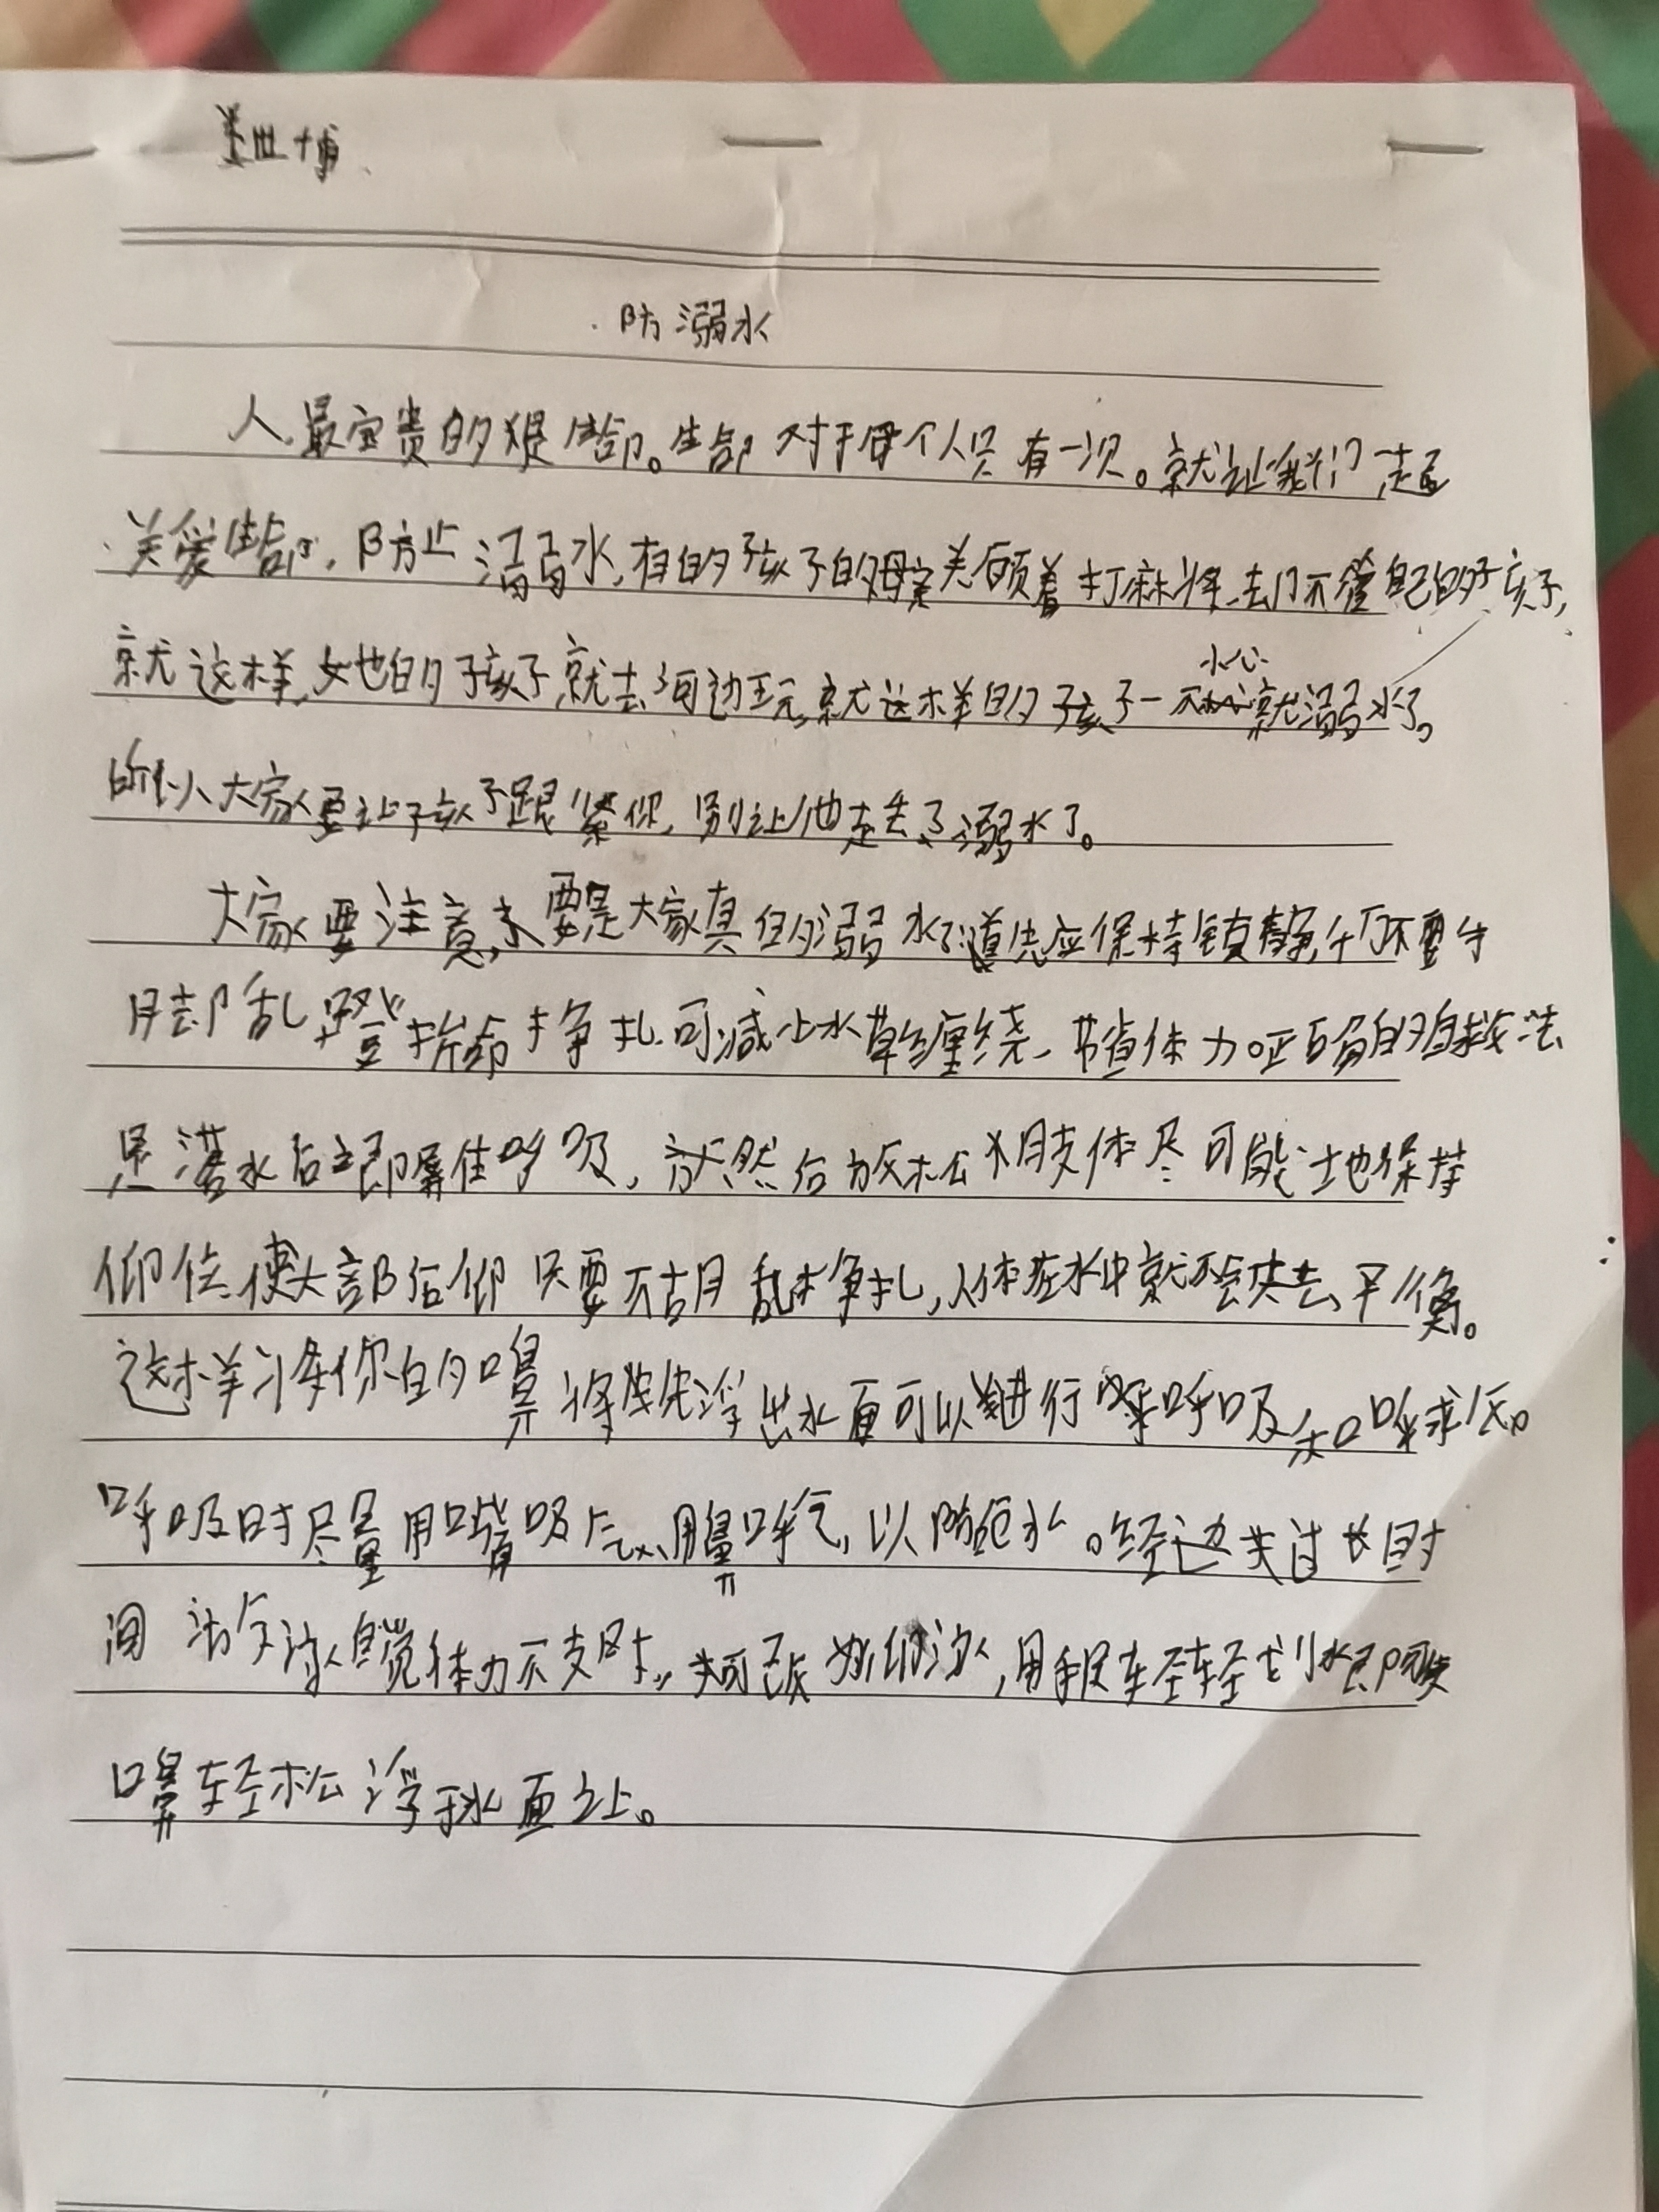 世博
防溺水
人最宝贵的是生命。生命对于每个人只有一次。就让我们一起
关爱生命,防止溺水,有的孩子的母亲光顾着打麻将去了不管自己的孩子,
就这样,她的孩子就去河边玩,就这样的孩子一不小心就溺水了。
所以大家要让孩子跟紧你,别让他走丢了溺水了。
大家要注意,要是大家真的溺水了首先应保持镇静,千万不要手
脚乱蹬拚命挣扎可减少水草缠绕,节省体力正确的自救法
是落水后立即屏住呼吸,然后放松肢体尽可能地保持
仰位,使头部后仰只要不胡乱挣扎,人体在水中就不会失去平衡。
这样你的口鼻将先浮出水面可以进行呼吸和呼求
呼吸时尽量用嘴吸气,用鼻呼气,以防呛水。经过长时
间游泳自觉体力不支时,可改仰泳,用手足轻轻划水即可使
口鼻轻松浮于水面之上。